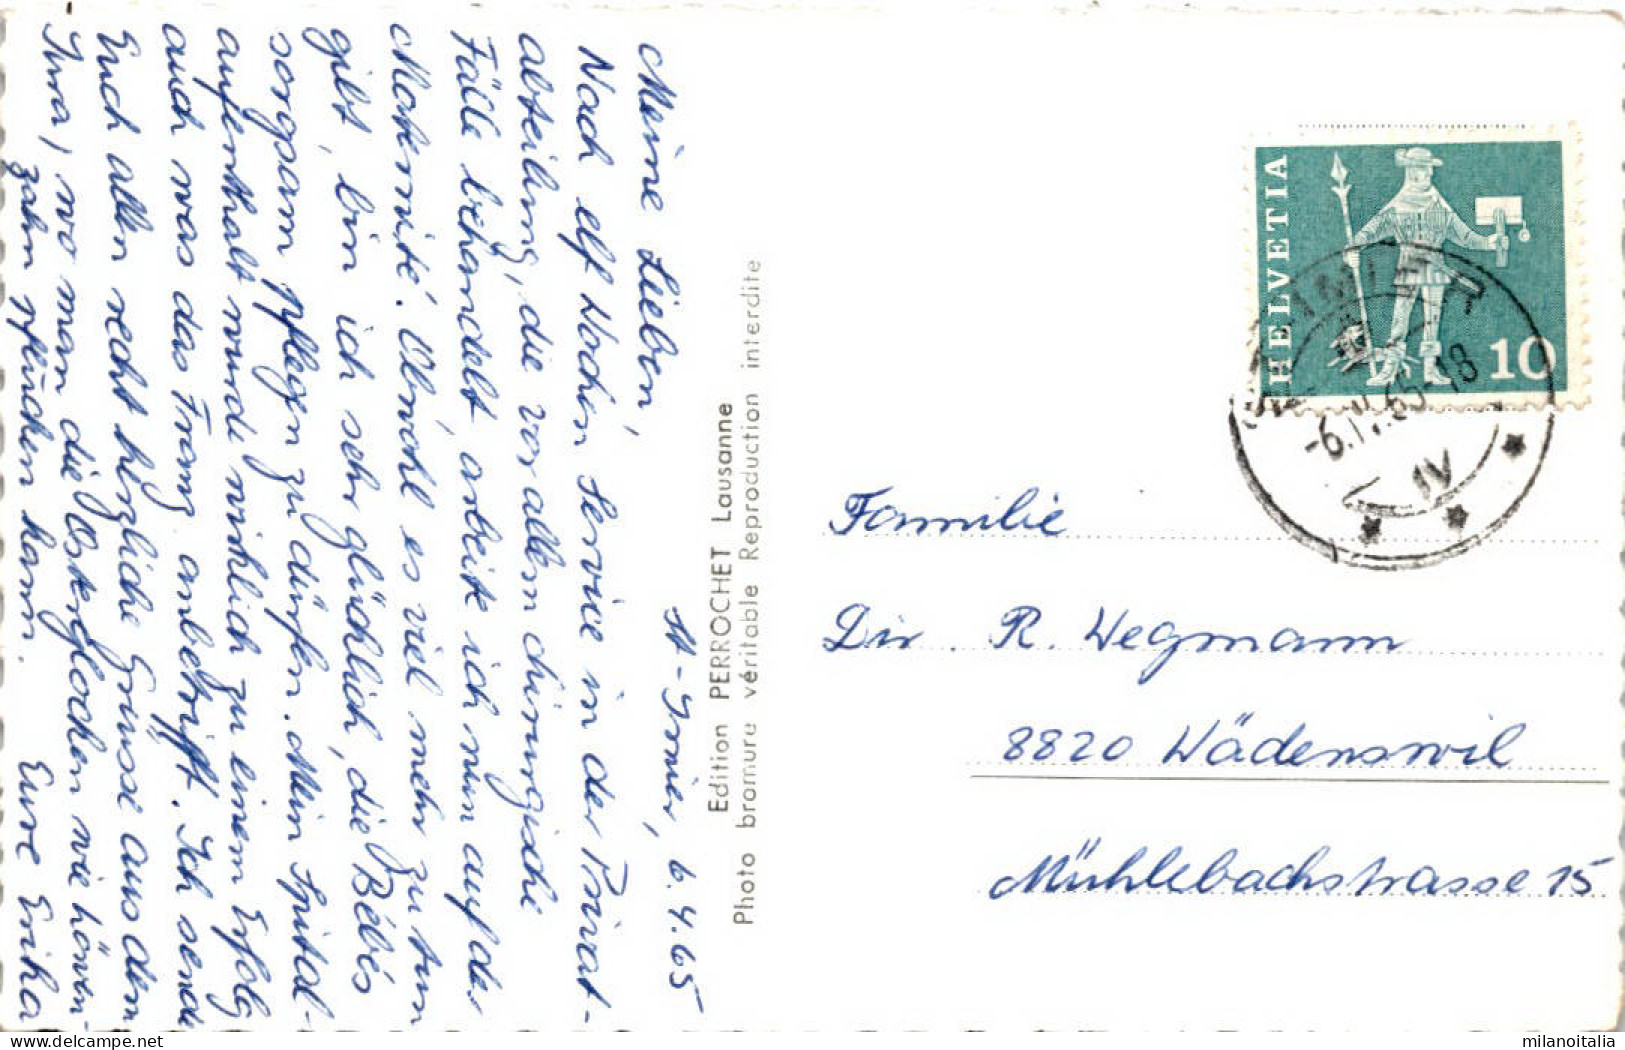 St-Imier, 6.4.65
Meine Lieben,
Nach elf Wochen Service in der Privat-
abteilung, die vor allem chirurgische
Fälle behandelt, arbeite ich nun auf der
Maternité. Obwohl es viel mehr zu tun
gibt, bin ich sehr glücklich, die Bébés
sorgsam pflegen zu dürfen. Mein Spital-
aufenthalt wurde wirklich zu einem Erfolg
auch was das Franz. anbetrifft. Ich sende
Euch allen recht herzliche Grüsse aus dem
Jura, wo man die Osterglocken wie hörein-
zahn pflücken kann.
Eure Erika
Edition PERROCHET Lausanne
Photo bromure véritable Reproduction interdite
HELVETIA
10
-6.IV.65-18
IV
Familie
Dir. R. Wegmann
8820 Wädenswil
Mühlebachstrasse 15
delcampe.net
milanoitalia